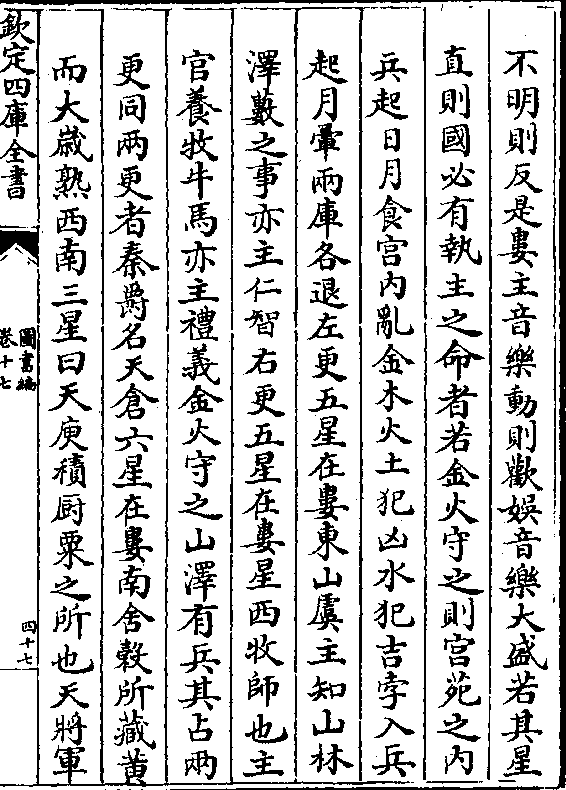 不明則反是婁主音樂動則歡娛音樂大盛若其星
直則國必有執主之命者若金火守之則宫苑之内
兵起日月食宫内亂金木火土犯凶水犯吉孛入兵
起月暈兩庫各退左更五星在婁東山虞主知山林
澤藪之事亦主仁智右更五星在婁星西牧師也主
官養牧牛馬亦主禮義金火守之山澤有兵其占兩
更同兩更者秦爵名天倉六星在婁南舍榖所藏黄
而大嵗熟西南三星曰天庾積厨粟之所也天將軍
欽定四庫全書
圖書編
卷十七
四十七